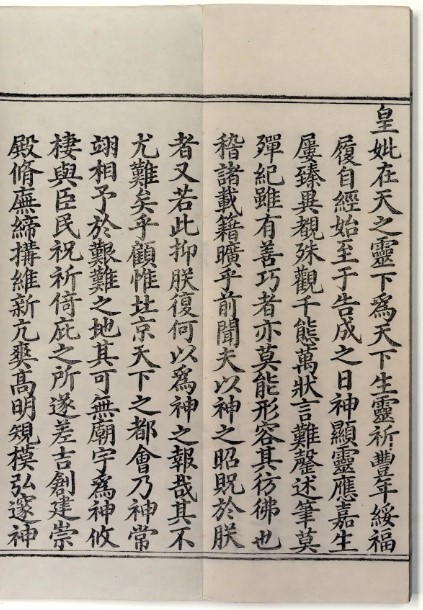 皇妣在天之靈下爲天下生靈祈豐年綏福
履自經始至于告成之日神顯靈應嘉生
屢臻異覩殊觀千態萬狀言難罄述筆莫
彈紀雖有善巧者亦莫能形容其彷彿也
稽諸載籍曠乎前聞夫以神之昭貺於朕
者又若此抑朕復何以爲神之報哉其不
尤難矣乎顧惟北京天下之都會乃神常
翊相予於艱難之地其可無廟宇爲神攸
棲與臣民祝祈倚庇之所遂差吉創建崇
殿脩廡締搆維新亢爽髙明規模弘邃神